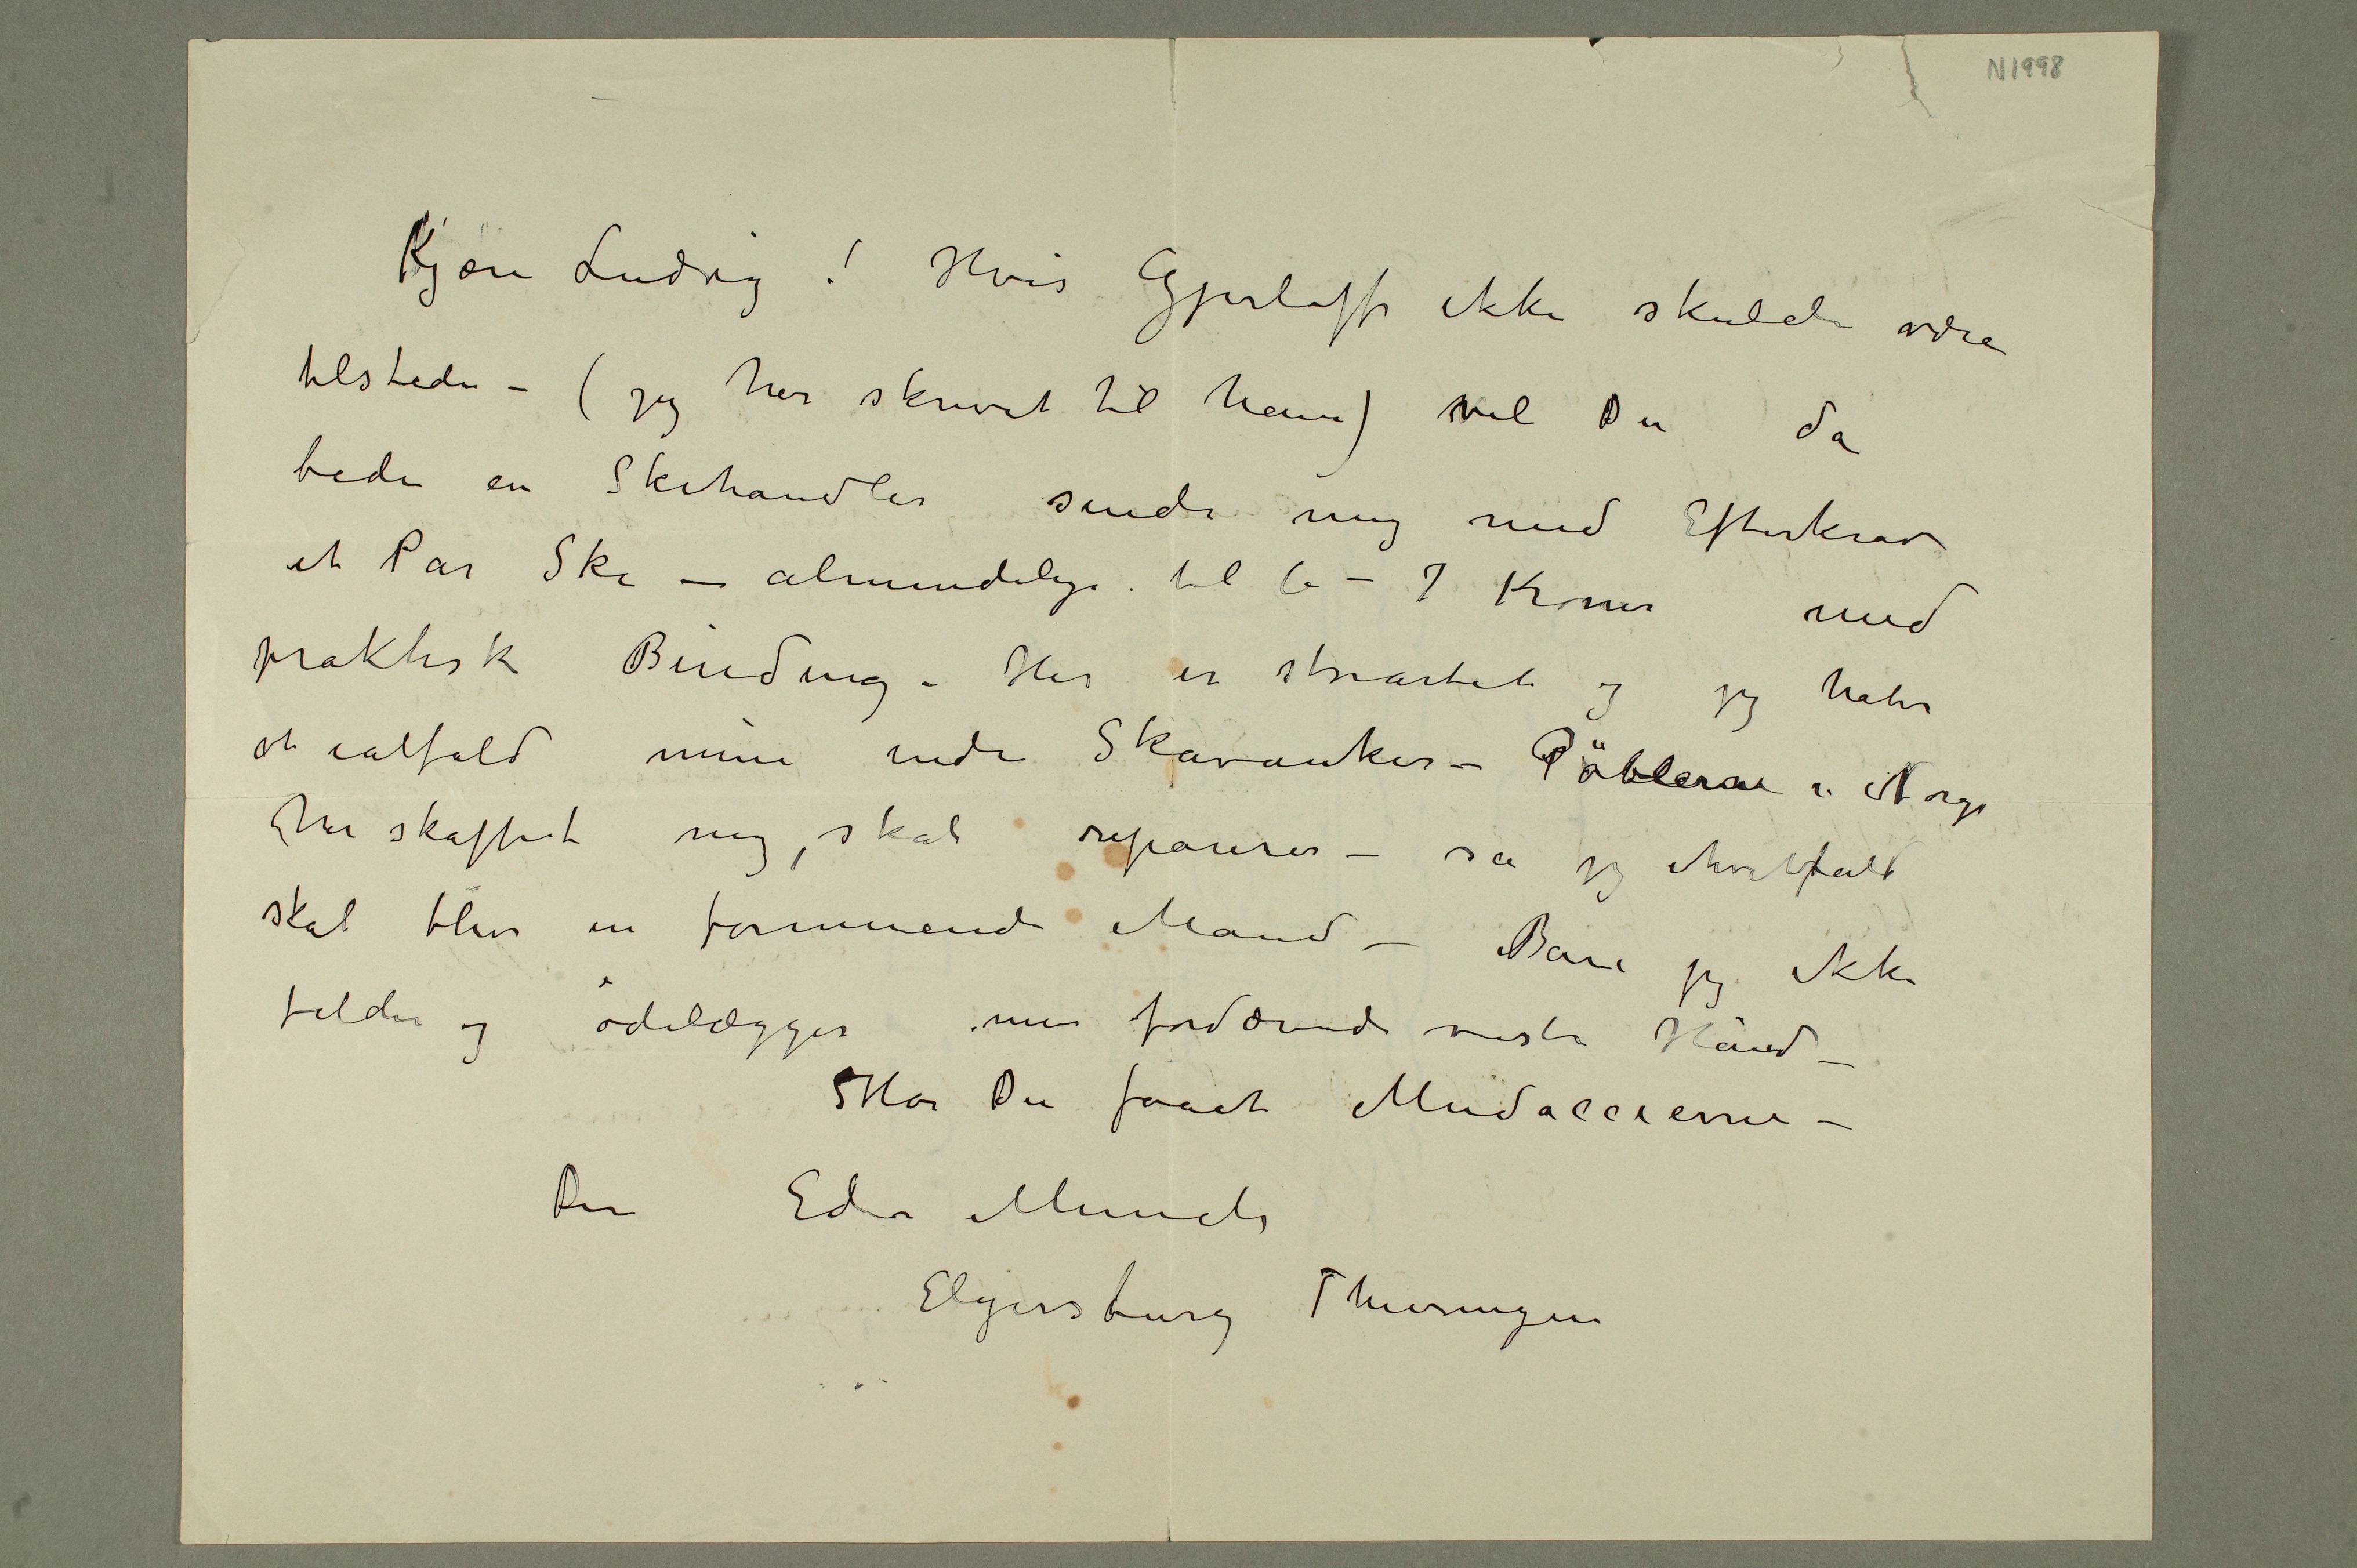 N1998
Kjære Ludvig! Hvis Gjerløff ikke skulde være
tilstede – (jeg har skrevet til ham) vil Du da
bede en Skihandler sende mig med Efterkrav
et Par Ski – almindelige til 6 – 7 Kroner med
praktisk Binding – Her er storartet og jeg håber
at ialfald mine indre Skavanker – Pöblerne i Norge
har skaffet mig, skal repareres – så jeg ihvertfald
skal blive en formuende Mand –  Bare jeg ikke
falder og ödelægger min fordærvede venstre Hånd –
Har Du faaet Medaccierne –
Din Edv Munch
Elgersburg Thüringen